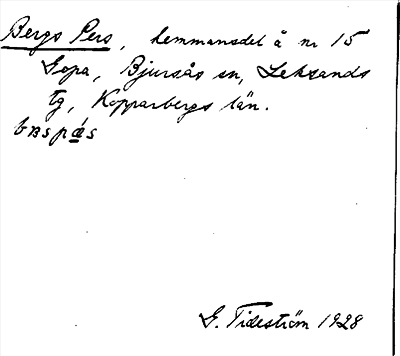 Bergs Pers, hemmansdel å nr 15
Sopa, Bjursås sn, Leksands
tg, Kopparbergs län.
G. Tideström 1928